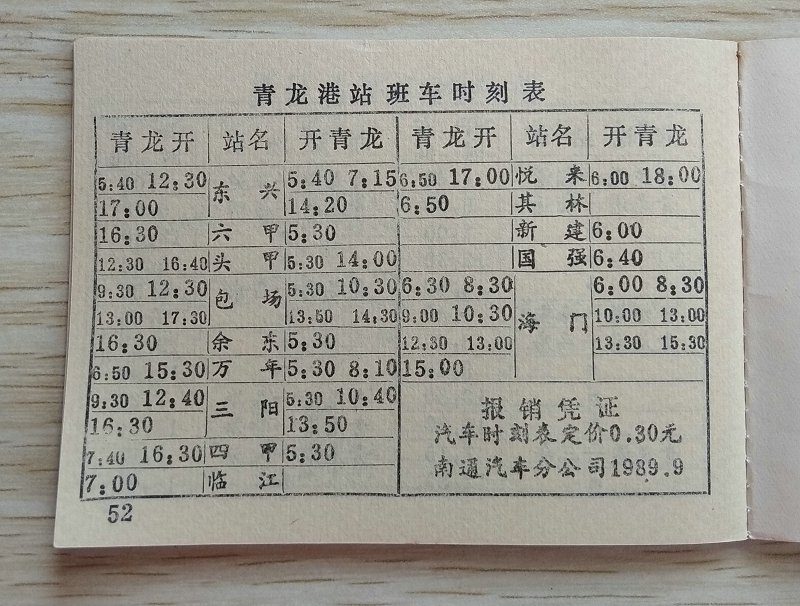 青龙港站班车时刻表
青龙开 站名 开青龙 青龙开 站名 开青龙
5:40 12:30 东兴 5:40 7:15 6:50 17:00 悦来 6:00 18:00
17:00 14:20 6:50 其林
16:30 六甲 5:30 新建 6:00
12:30 16:40 头甲 5:30 14:00 国强 6:40
9:30 12:30 包场 5:30 10:30 6:30 8:30 海门 6:00 8:30
13:00 17:30 13:50 14:30 9:00 10:30 10:00 13:00
16:30 余东 5:30 12:30 13:00 13:30 15:30
6:50 15:30 万年 5:30 8:10 15:00
9:30 12:40 三阳 5:30 10:40
16:30 13:50
7:40 16:30 四甲 5:30
7:00 临江
报销凭证
汽车时刻表定价0.30元
南通汽车分公司1989.9
52